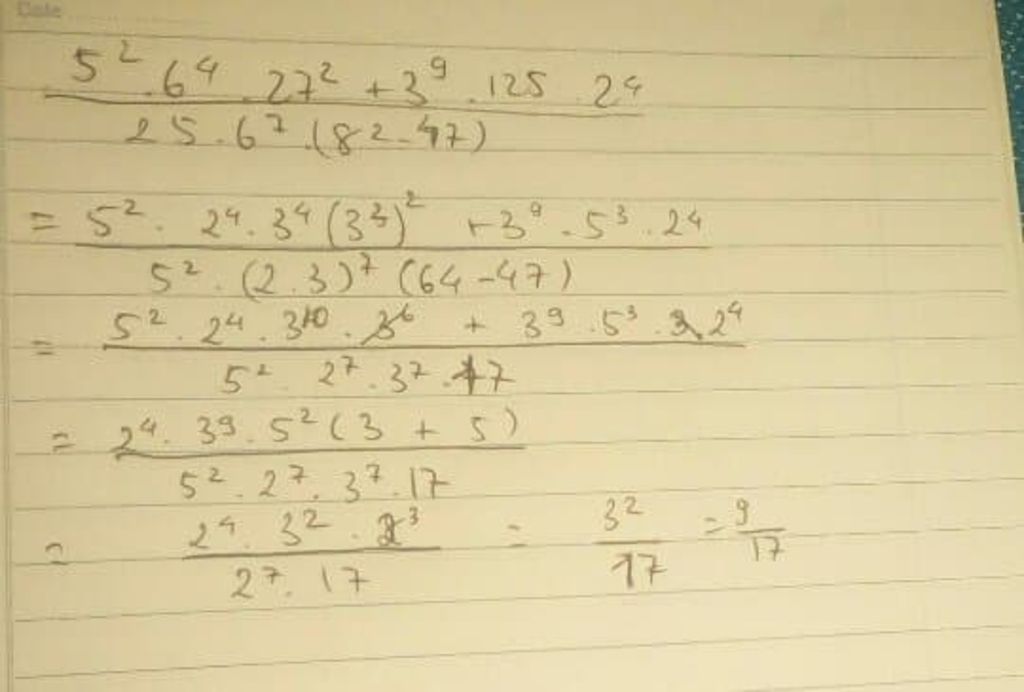 Date
5² . 6⁴ . 27² + 3⁹ . 125 . 2⁴
25 . 6⁷ . (82 - 47)
= 5² . 2⁴ . 3⁴ (3³)² + 3⁹ . 5³ . 2⁴
5² . (2 . 3)⁷ (64 - 47)
= 5² . 2⁴ . 3¹⁰ . 3⁶ + 3⁹ . 5³ . 2⁴
5² 2⁷ . 3⁷ . 17
= 2⁴ . 3⁹ . 5² ( 3 + 5 )
5² . 2⁷ . 3⁷ . 17
= 2⁴ . 3² . 2³ = 3² = 9
2⁷ . 17 17 17